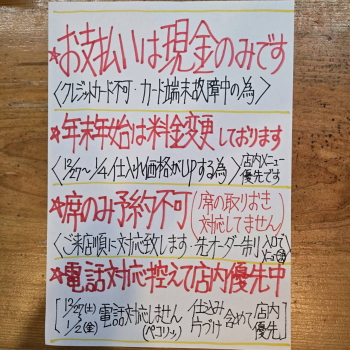 ★お支払いは現金のみです
〈クレジットカード不可・カード端末故障中の為〉
★年末年始は料金変更しております
〈12/27〜1/4仕入れ価格がUPする為〉店内メニュー優先です
★席のみ予約不可(席の取りおき対応してません)
〈ご来店順に対応致します・先オーダー制り
★電話対応控えて店内優先中
[12/27(土) 1/2(金) 電話対応しません(ペコリッ) 仕込み片づけ含めて店内優先]